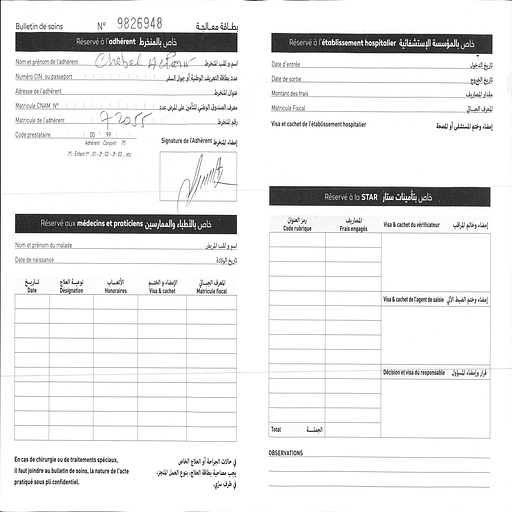 Bulletin de soins N° 9826948 بطاقة معالجة
Réservé à l'adhérent خاص بالمنخرط
Nom et prénom de l'adhérent Chebel إسم و لقب المنخرط
Numéro CIN ou passeport عدد بطاقة التعريف الوطنية أو جواز السفر
Adresse de l'adhérent عنوان المنخرط
Matricule CNAM N° معرف الصندوق الوطني للتأمين على المرض عدد
Matricule de l'adhérent 72055 رقم المنخرط
Code prestataire 00 99 Signature de l'Adhérent إمضاء المنخرط
Adhérent Conjoint (*)
(*) : Enfant 1er : 01 - 2e : 02 - 3e : 03 ... etc
Réservé aux médecins et praticiens خاص بالأطباء والممارسين
Nom et prénom du malade إسم و لقب المريض
Date de naissance تاريخ الولادة
تاريخ نوعية العلاج الأتعاب الإمضاء و الختم المعرف الجبائي
Date Désignation Honoraires Visa & cachet Matricule fiscal
En cas de chirurgie ou de traitements spéciaux,
il faut joindre au bulletin de soins, la nature de l'acte
pratiqué sous pli confidentiel.
في حالات الجراحة أو العلاج الخاص
يجب مصاحبة بطاقة العلاج، بنوع العمل المنجز،
في ظرف سري.
Réservé à l'établissement hospitalier خاص بالمؤسسة الإستشفائية
Date d'entrée تاريخ الدخول
Date de sortie تاريخ الخروج
Montant des frais مقدار المصاريف
Matricule Fiscal المعرف الجبائي
Visa et cachet de l'établissement hospitalier إمضاء وختم المستشفى أو المصحة
Réservé à la STAR خاص بتأمينات ستار
رمز العنوان المصاريف
Code rubrique Frais engagés
Visa & cachet du vérificateur إمضاء وخاتم المراقب
Visa & cachet de l'agent de saisie إمضاء وختم الضبط الآلي
Décision et visa du responsable قرار وإمضاء المسؤول
Total الجملة
OBSERVATIONS